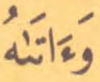 وَءَاتَىٰهُ